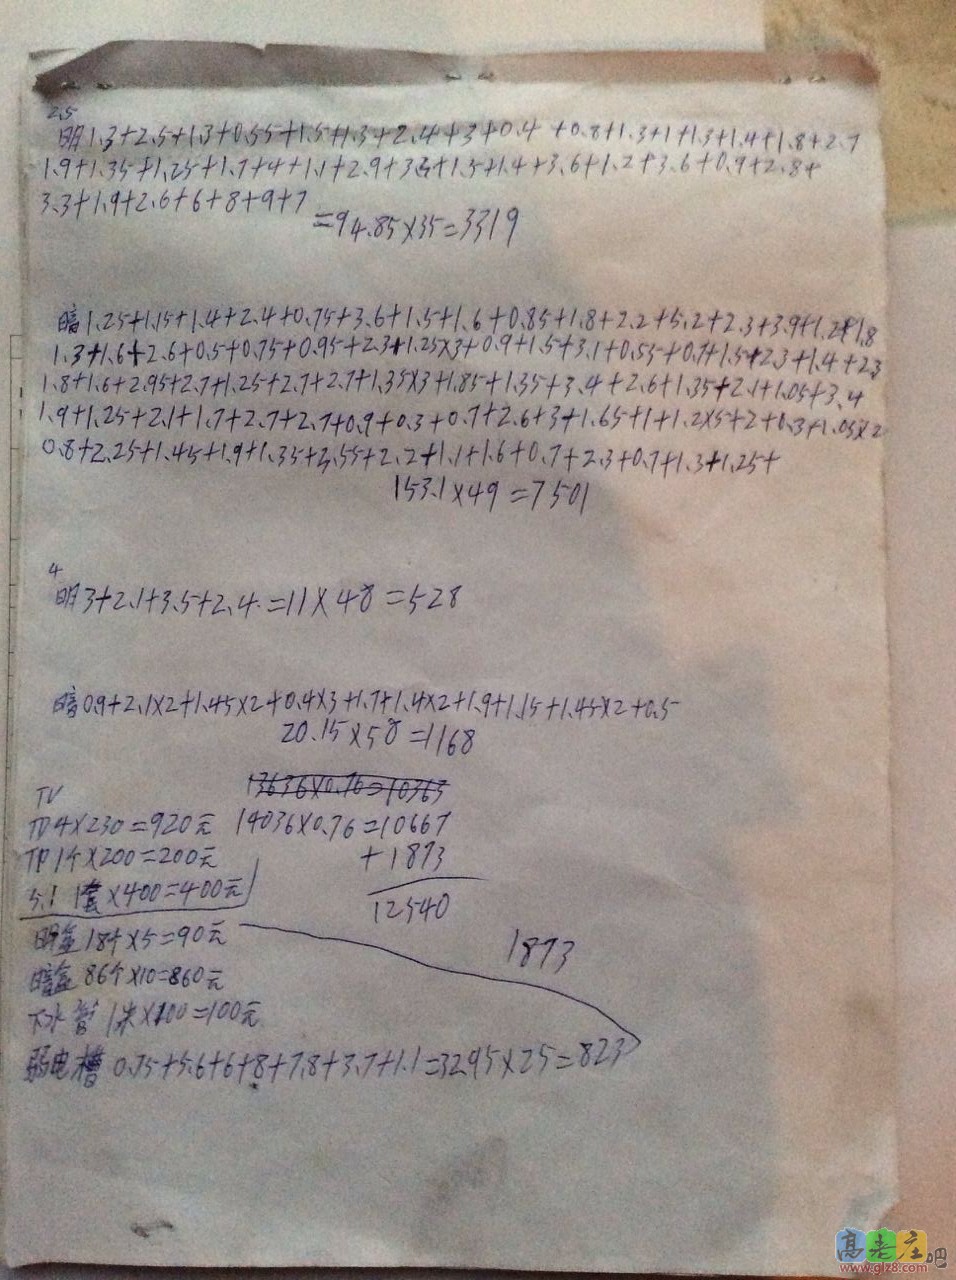 2.5
明1.3+2.5+1.3+0.55+1.5+1.3+2.4+3+0.4+0.8+1.3+1+1.3+1.4+1.8+2.7
1.9+1.35+1.25+1.7+4+1.1+2.9+3.3+1.5+1.4+3.6+1.2+3.6+0.9+2.8+
3.3+1.9+2.6+6+8+9+7
=94.85×35=3319
暗1.25+1.15+1.4+2.4+0.75+3.6+1.5+1.6+0.85+1.8+2.2+5.2+2.3+3.9+1.2+1.8
1.3+1.6+2.6+0.5+0.75+0.95+2.3+1.25×3+0.9+1.5+3.1+0.55+0.7+1.5+2.3+1.4+2.3
1.8+1.6+2.95+2.7+1.25+2.7+2.7+1.35×3+1.85+1.35+3.4+2.6+1.35+2.1+1.05+3.4
1.9+1.25+2.1+1.7+2.7+2.7+0.9+0.3+0.7+2.6+3+1.65+1+1.2×5+2+0.3+1.05×2
0.8+2.25+1.45+1.9+1.35+2.55+2.2+1.1+1.6+0.7+2.3+0.7+1.3+1.25+
153.1×49=7501
4
明3+2.1+3.5+2.4=11×48=528
暗0.9+2.1×2+1.45×2+0.4×3+1.7+1.4×2+1.9+1.15+1.45×2+0.5
20.15×58=1168
13636×0.76=10363
TV
TD4×230=920元
14036×0.76=10667
TP1个×200=200元
+1873
5.1 1套×400=400元
12540
明盒18个×5=90元
1873
暗盒86个×10=860元
下水管1米×100=100元
弱电槽0.75+5.6+6+8+7.8+3.7+1.1=32.95×25=823
高老庄吧
www.glz8.com